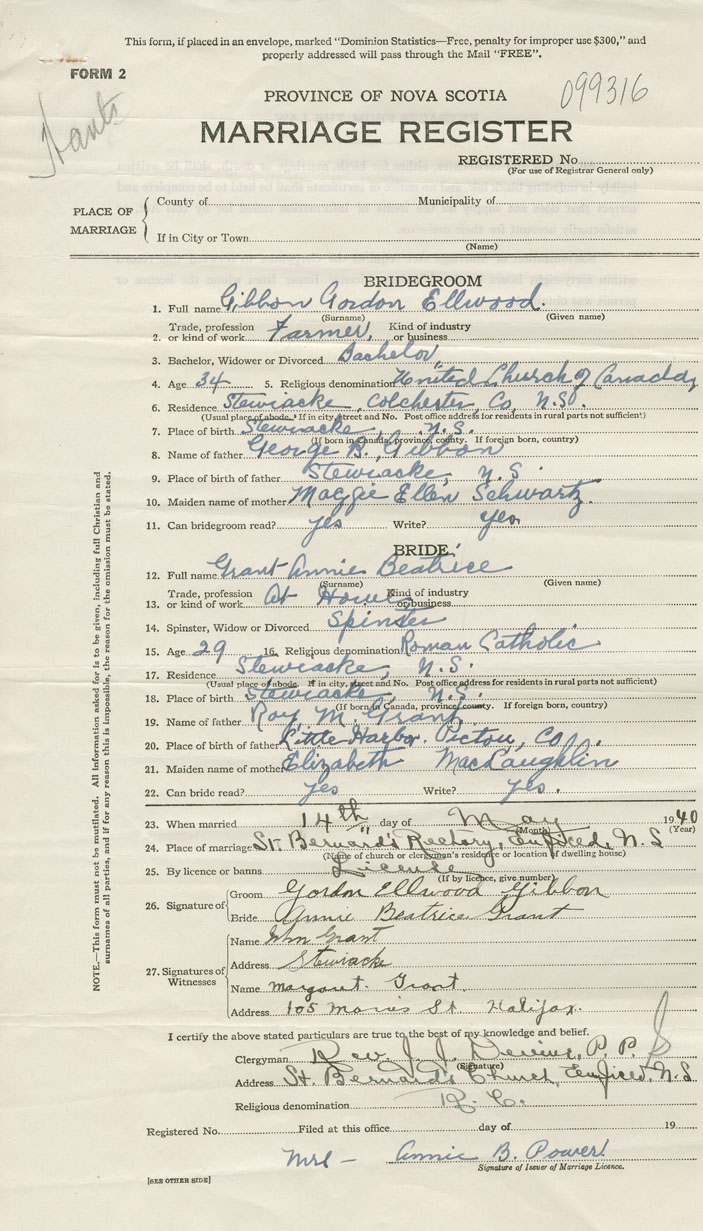 This form, if placed in an envelope, marked "Dominion Statistics—Free, penalty for improper use $300," and
properly addressed will pass through the Mail "FREE".
FORM 2
Hants
PROVINCE OF NOVA SCOTIA
099316
MARRIAGE REGISTER
REGISTERED No.
(For use of Registrar General only)
PLACE OF MARRIAGE
County of Municipality of
If in City or Town
(Name)
BRIDEGROOM
1. Full name Gibbon Gordon Ellwood.
(Surname) (Given name)
2. Trade, profession or kind of work Farmer, Kind of industry or business
3. Bachelor, Widower or Divorced Bachelor,
4. Age 34 5. Religious denomination United Church of Canada,
6. Residence Stewiacke, Colchester Co, N.S.
(Usual place of abode. If in city, street and No. Post office address for residents in rural parts not sufficient)
7. Place of birth Stewiacke, N.S.
(If born in Canada, province, county. If foreign born, country)
8. Name of father George B. Gibbon
9. Place of birth of father Stewiacke, N.S.
10. Maiden name of mother Maggie Ellen Schwartz.
11. Can bridegroom read? yes Write? yes
BRIDE
12. Full name Grant Annie Beatrice
(Surname) (Given name)
13. Trade, profession or kind of work At Home Kind of industry or business
14. Spinster, Widow or Divorced Spinster
15. Age 29 16. Religious denomination Roman Catholic
17. Residence Stewiacke, N.S.
(Usual place of abode. If in city, street and No. Post office address for residents in rural parts not sufficient)
18. Place of birth Stewiacke, N.S.
(If born in Canada, province, county. If foreign born, country)
19. Name of father Roy M. Grant.
20. Place of birth of father Little Harbor. Pictou, Co.
21. Maiden name of mother Elizabeth MacLaughlin
22. Can bride read? yes Write? yes.
23. When married 14th day of May 1940
(Month) (Year)
24. Place of marriage St. Bernard's Rectory, Enfield, N.S
(Name of church or clergymen's residence or location of dwelling house)
25. By licence or banns License
(If by licence, give number)
26. Signature of
Groom Gordon Ellwood Gibbon
Bride Annie Beatrice Grant
27. Signatures of Witnesses
Name Wm Grant
Address Stewiacke
Name Margaret Grant.
Address 105 Morris St Halifax.
I certify the above stated particulars are true to the best of my knowledge and belief.
Clergyman Rev. J. J. P. P.
(Signature)
Address St. Bernard's Church, Enfield, N.S.
Religious denomination R. C.
Registered No. Filed at this office day of 19
Mrs - Annie B. Power
Signature of Issuer of Marriage Licence.
[SEE OTHER SIDE]
NOTE.—This form must not be mutilated. All information asked for is to be given, including full Christian and
surnames of all parties, and if for any reason this is impossible, the reason for the omission must be stated.